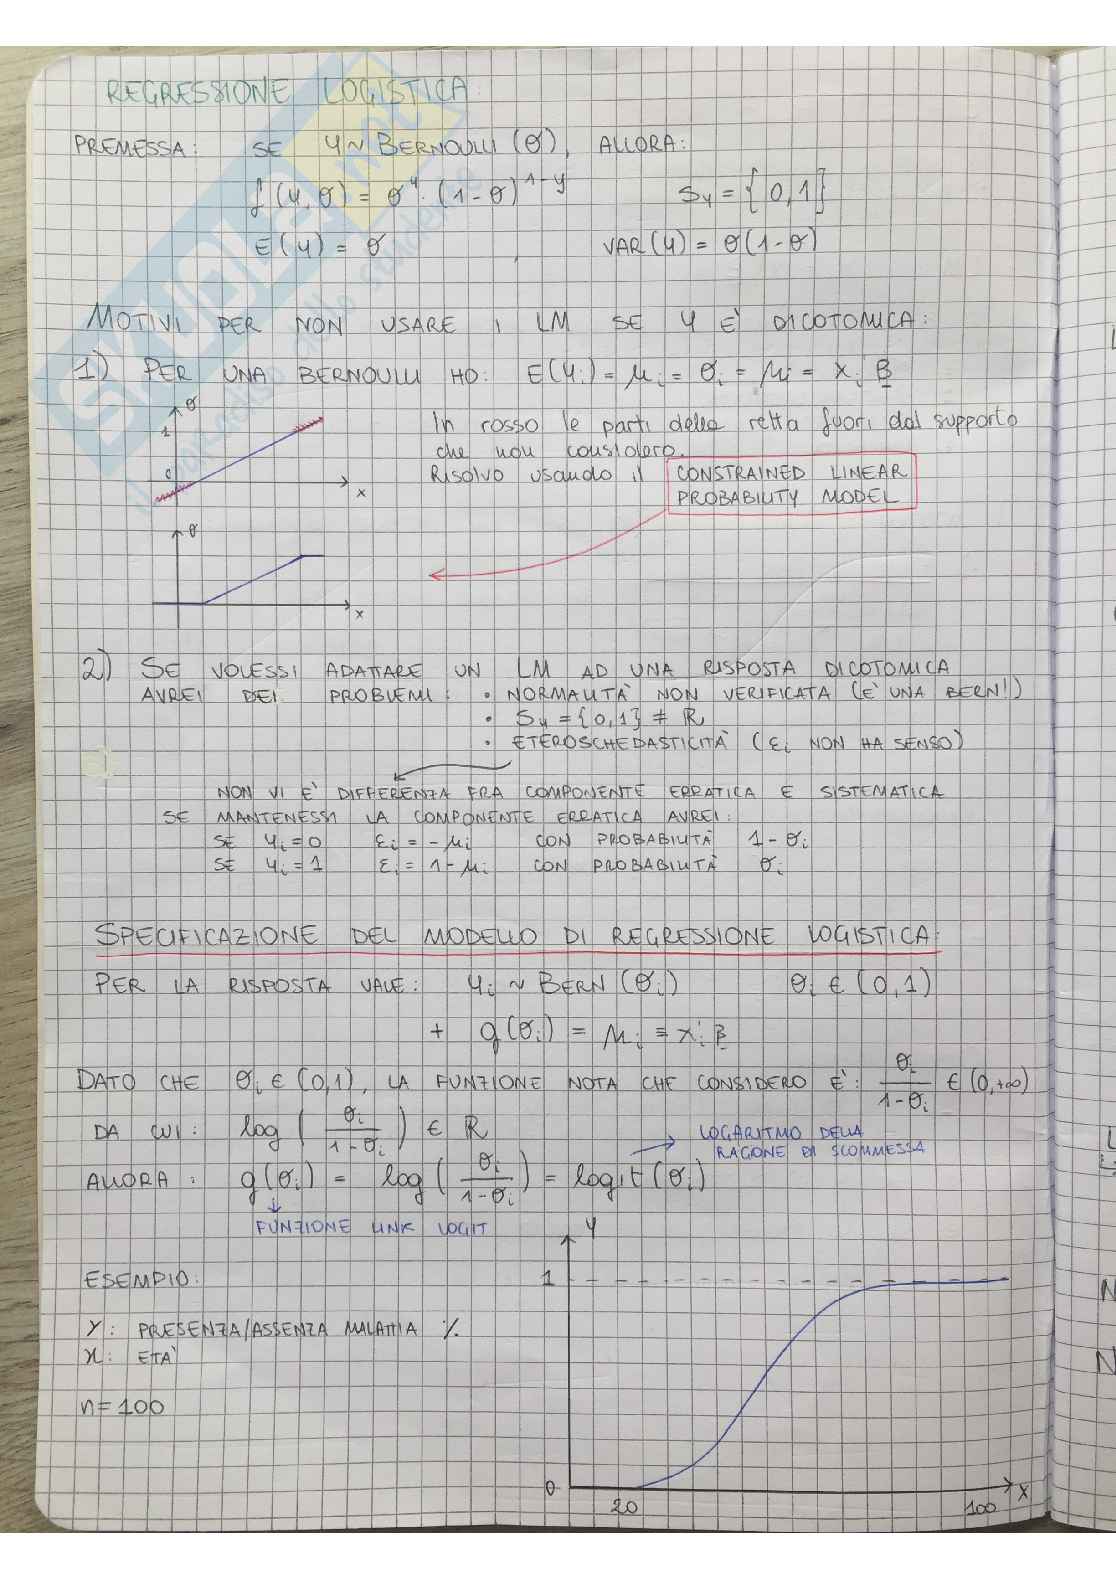 REGRESSIONE LOGISTICA:
PREMESSA: SE Y ~ BERNOULLI (θ), ALLORA:
f(y,θ) = θ^y · (1-θ)^1-y S_y = {0,1}
E(y) = θ VAR(y) = θ(1-θ)
MOTIVI PER NON USARE I LM SE Y E' DICOTOMICA:
1) PER UNA BERNOULLI HO: E(y_i) = μ_i = θ_i = μ_i = x_i β
θ
1
0
x
In rosso le parti della retta fuori dal supporto
che non considero.
Risolvo usando il CONSTRAINED LINEAR
PROBABILITY MODEL
θ
x
2) SE VOLESSI ADATTARE UN LM AD UNA RISPOSTA DICOTOMICA
AVREI DEI PROBLEMI: • NORMALITÀ NON VERIFICATA (E' UNA BERN!)
• S_y = {0,1} ≠ ℝ
• ETEROSCHEDASTICITÀ (ε_i NON HA SENSO)
NON VI E' DIFFERENZA FRA COMPONENTE ERRATICA E SISTEMATICA
SE MANTENESSI LA COMPONENTE ERRATICA AVREI:
SE y_i = 0 ε_i = -μ_i CON PROBABILITÀ 1-θ_i
SE y_i = 1 ε_i = 1-μ_i CON PROBABILITÀ θ_i
SPECIFICAZIONE DEL MODELLO DI REGRESSIONE LOGISTICA:
PER LA RISPOSTA VALE: y_i ~ BERN (θ_i) θ_i ∈ (0,1)
+ g(θ_i) = μ_i = x'_i β
DATO CHE θ_i ∈ (0,1), LA FUNZIONE NOTA CHE CONSIDERO E': θ_i/(1-θ_i) ∈ (0,+∞)
DA CUI: log (θ_i/(1-θ_i)) ∈ ℝ
LOGARITMO DELLA
RAGIONE DI SCOMMESSA
ALLORA: g(θ_i) = log (θ_i/(1-θ_i)) = logit (θ_i)
FUNZIONE LINK LOGIT
ESEMPIO:
Y: PRESENZA/ASSENZA MALATTIA %
X: ETA'
n=100
Y
1
0
20
100
X
SKUOLA.net
il paradiso dello studente